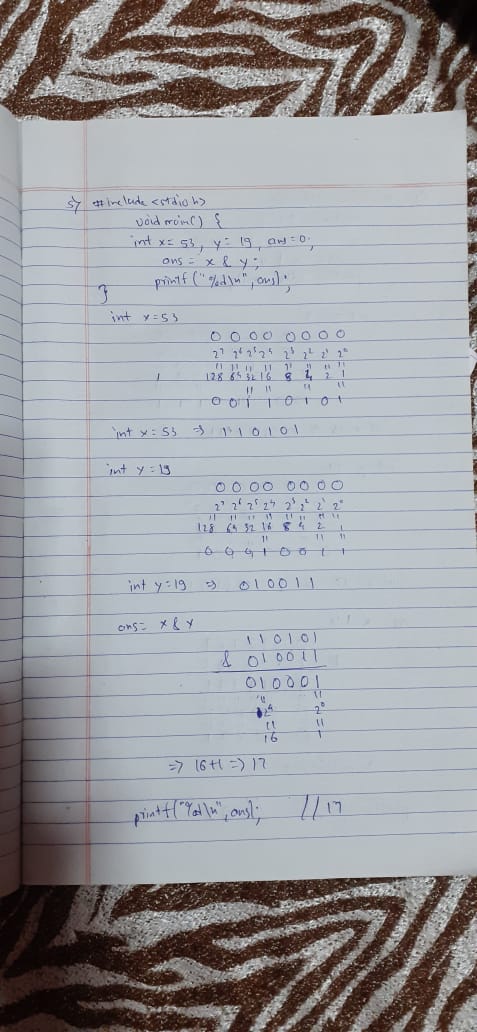 5) #include <stdio.h>
void main() {
int x= 53, y= 19, ans=0;
ans = x & y;
printf("%d\n", ans);
}
int x=53
0 0 0 0 0 0 0 0
2⁷ 2⁶ 2⁵ 2⁴ 2³ 2² 2¹ 2⁰
" " " " " " " "
128 64 32 16 8 4 2 1
" " " "
0 0 1 1 0 1 0 1
int x= 53 => 110101
int y=19
0 0 0 0 0 0 0 0
2⁷ 2⁶ 2⁵ 2⁴ 2³ 2² 2¹ 2⁰
" " " " " " " "
128 64 32 16 8 4 2 1
" " "
0 0 0 1 0 0 1 1
int y=19 => 010011
ans= x & y
110101
& 010011
010001
" "
2⁴ 2⁰
" "
16 1
=> 16+1 => 17
printf("%d\n", ans); //17